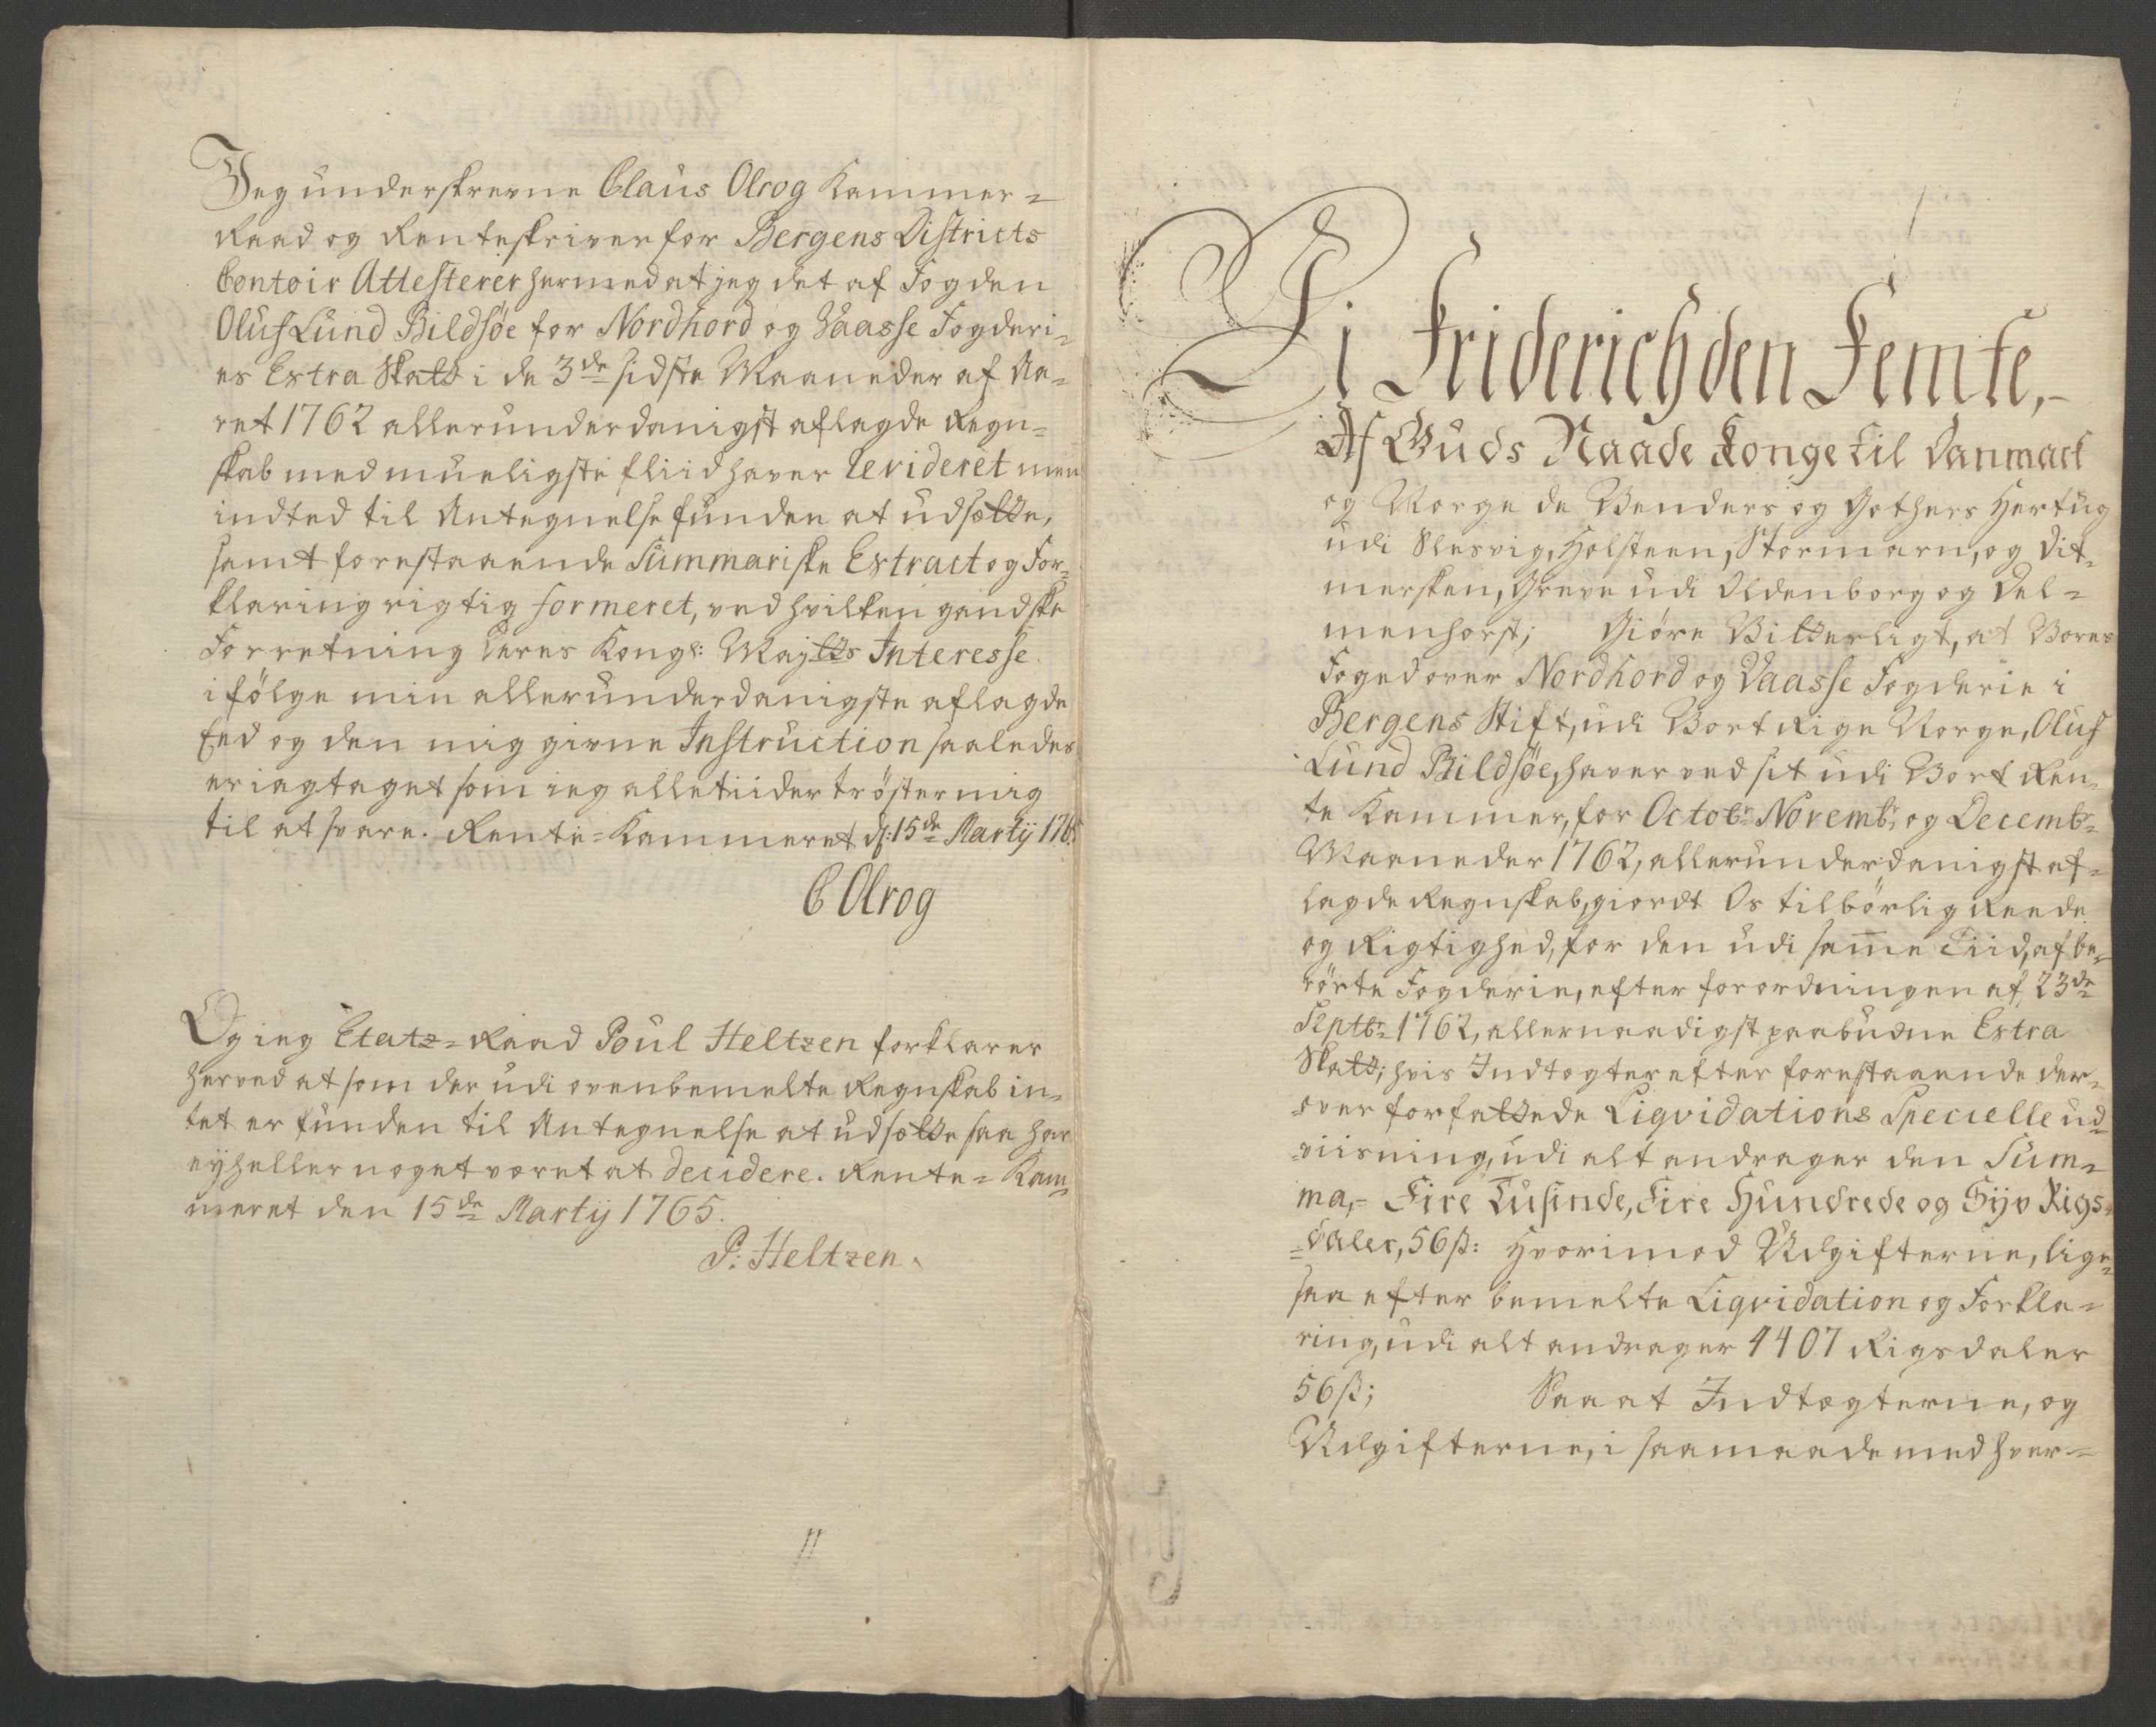 Jeg underskrevne Claus Olrog Kammer=
Raad og Renteskriver for Bergens Districts
Contoir Attesterer hermed at jeg det af Fogden
Oluf Lund Bildsøe for Nordhord og Vaasse Fogderi=
es Extra Skatt i de 3de sidste Maaneder af Aa=
ret 1762 allerunderdanigst aflagde Regn=
skab med mueligste fliid haver revideret men
indted til Antegnelse funden at udsætte,
samt forestaaende Summariske Extract og For=
klaring rigtig formeret, ved hvilken gandske
Forretning Deres Kongl: Maytts Interesse
i følge min allerunderdanigste aflagde
Eed og den mig givne Instruction saaledes
er iagtaget som ieg alletiider trøster mig
til at svare. Rente=Kammeret d: 15de Martij 1765
C Olrog
Og ieg Etatz=Raad Poul Heltzen forklarer
herved at som der udi ovenbemelte Regnskab in=
tet er funden til Antegnelse at udsætte saa har
eyheller noget været at decidere. Rente=Kam=
meret den 15de Martij 1765.
P: Heltzen.
Vi Friderich den Femte,
Af Guds Naade Konge til Danmark
og Norge de Venders og Gothers Hertug
udi Slesvig, Holsteen, Stormarn, og Dit=
mersken, Greve udi Oldenborg og Del=
menhorst; Giøre Vitterligt, at Vores
Foged over Nordhord og Vaasse Fogderie i
Bergens Stift, udi Vort Rige Norge, Oluf
Lund Bildsøe, haver ved sit udi Vort Ren=
te Kammer, for Octobr Novembr og Decembr
Maaneder 1762, allerunderdanigst af=
lagde Regnskab, giordt Os tilbørlig Reede
og Rigtighed, for den udi samme Tiid, af be=
rørte Fogderie, efter forordningen af 23de
Septbr 1762, allernaadigst paabudne Extra
Skatt; hvis Indtægter efter forestaaende der=
over forfattede Liqvidations Specielle ud=
viisning, udi alt andrager den Sum=
ma,= Fire Tusinde, Fire Hundrede og Syv Rigs=
=daler, 56 ß: Hvorimod Udgifterne, lige=
saa efter bemelte Liqvidation og Forkla=
ring, udi alt andrager 4407 Rigsdaler
56 ß; Saa at Indtægterne, og
Udgifterne, i saamaade med hver=